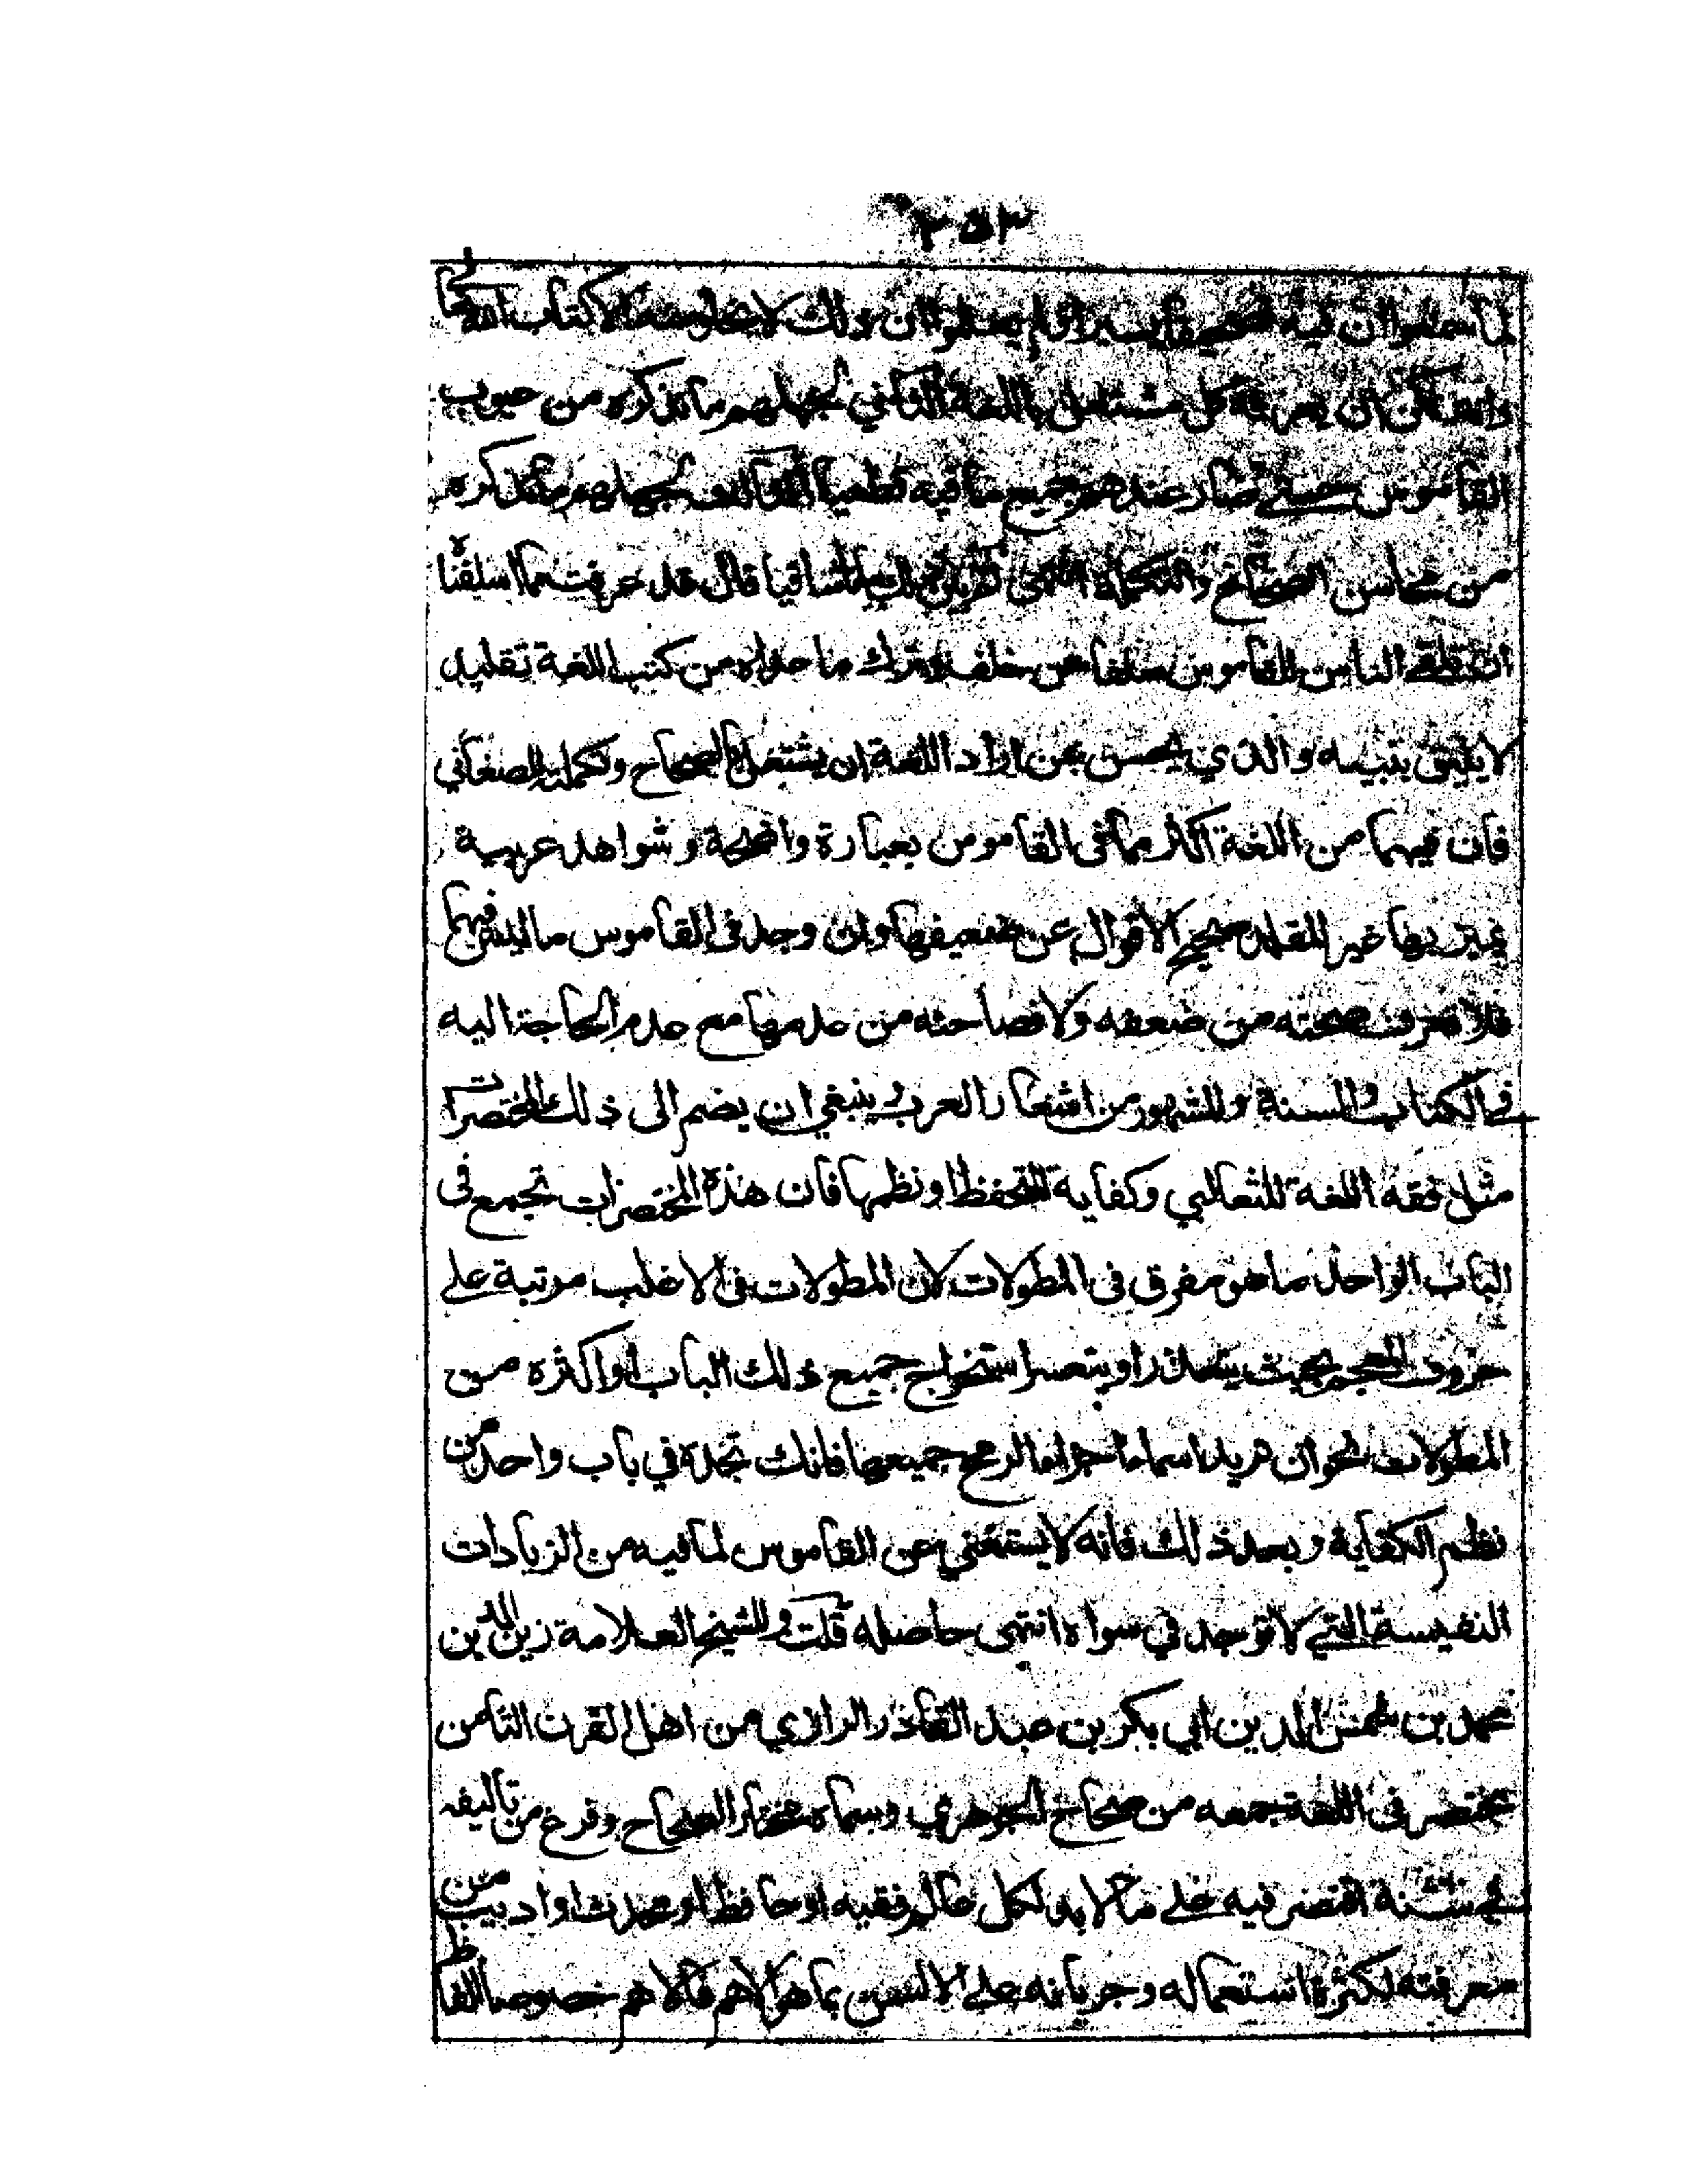 ٣٥٣
لما سمعوا ان فيه تصحيفا يسيرا ولم يعلموا ان ذلك لا يخلو منه الا كتاب الله
كل مشتغل باللغة الثاني لجهلهم ما نذكره من عيوب
القاموس حتى صار عندهم جميع ما فيه قطعيا لجهلهم ما نذكره
من محاسن الصحاح والتكملة انتهى قال قد عرفت مما اسلفناه
ان تلقي الناس للقاموس سلفا عن خلف وترك ما عداه من كتب اللغة تقليد
لا يليق بتبيه والذي يحسن بمن اراد اللغة ان يشتغل بالصحاح وتكملة الصغاني
فان فيهما من اللغة اكثر مما في القاموس بعبارة واضحة وشواهد عربية
يميز بها غير المقلد صحيح الاقوال عن ضعيفها وان وجد في القاموس ما ليس فيهما
فلا تعرف صحته من ضعفه ولا فصاحته من عدمها مع عدم الحاجة اليه
في الكتاب والسنة والمشهور من اشعار العرب وينبغي ان يضم الى ذلك المختصرات
مثل فقه اللغة للثعالبي وكفاية المتحفظ او نظمها فان هذه المختصرات تجمع في
الباب الواحد ما هو مفرق في المطولات لان المطولات في الاغلب مرتبة على
حروف المعجم بحيث يتعذر او يتعسر استخراج جميع ذلك الباب او اكثره من
المطولات نحو ان تريد اسماء اجزاء الرمح جميعها فانك تجده في باب واحد من
نظم الكفاية وبعد ذلك فانه لا يستغني عن القاموس لما فيه من الزيادات
النفيسة التي لا توجد في سواه انتهى حاصله قلت وللشيخ العلامة زين الدين بن
محمد بن شمس الدين ابي بكر بن عبد القادر الرازي من اهل القرن الثامن
مختصر في اللغة جمعه من صحاح الجوهري وسماه مختار الصحاح وفرغ من تاليفه
في سنة اقتصر فيه على ما لا بد لكل عالم فقيه او حافظ او محدث او اديب من
معرفته لكثرة استعماله وجريانه على الالسن بما هو الاهم فالاهم خصوصا الفاظ